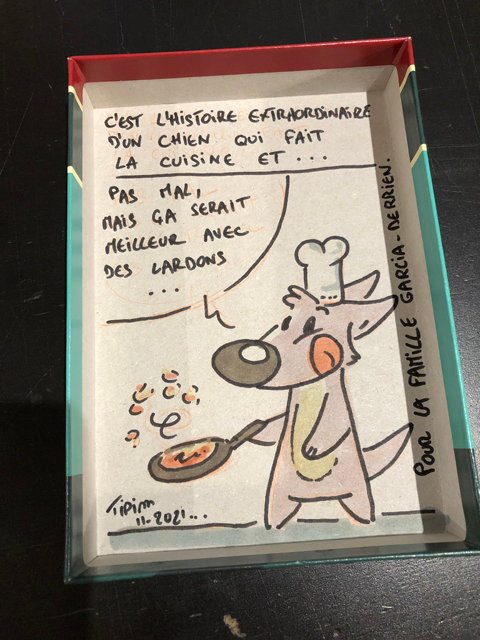 C'EST L'HISTOIRE EXTRAORDINAIRE
D'UN CHIEN QUI FAIT
LA CUISINE ET...
PAS MAL,
MAIS ÇA SERAIT
MEILLEUR AVEC
DES LARDONS
...
POUR LA FAMILLE GARCIA-DERRIEN.
11-2021...